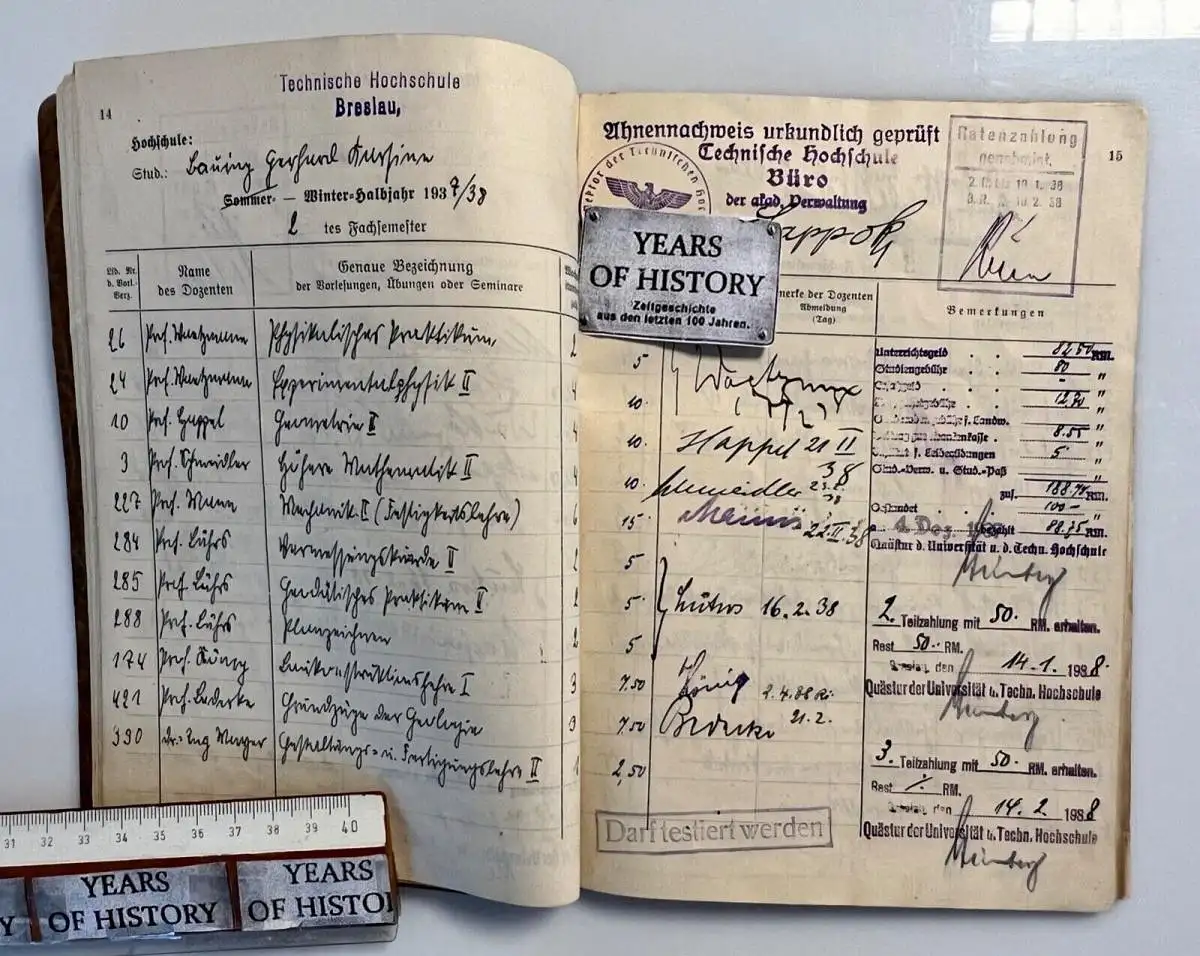 14
Technische Hochschule
Breslau,
Hochschule:
Stud.: Bauing Gerhard
Sommer- — Winter-Halbjahr 1937/38
2 tes Fachsemester
Lfd. Nr.
d. Vorl.
Verz.
Name
des Dozenten
Genaue Bezeichnung
der Vorlesungen, Übungen oder Seminare
26 Prof. Waetzmann Physikalisches Praktikum 2
24 Prof. Waetzmann Experimentalphysik II 4
10 Prof. Happel Geometrie II 4
3 Prof. Schmeidler Höhere Mathematik II 4
227 Prof. Mann Mechanik I (Festigkeitslehre) 6
284 Prof. Lührs Vermessungskunde II 2
285 Prof. Lührs Geodätisches Praktikum II 2
288 Prof. Lührs Planzeichnen 2
174 Prof. König Baukonstruktionslehre I 3
421 Prof. Bederke Grundzüge der Geologie 3
390 Dr.-Ing Mayer Gestaltungs- u. Fertigungslehre II 1
15
Ahnennachweis urkundlich geprüft
Technische Hochschule
Büro
der akad. Verwaltung
Rektor der Technischen Hoc
Ratenzahlung
genehmigt.
2. R. bis 10. 1. 38
3. R. 10. 2. 38
YEARS
OF HISTORY
Zeitgeschichte
aus den letzten 100 Jahren.
merke der Dozenten
Abmeldung
(Tag)
Bemerkungen
5
10.
10. Happel 21 II 38
10. Schmeidler 38
15 22.II.38
5
5 Lührs 16.2.38
5
7.50 König 2.4.38
7.50 Bederke 21.2.
2,50
Unterrichtsgeld . . 82.50 RM.
Studiengebühr . . 80 "
12,70 "
f. Landw.
8.55 "
f. Leibesübungen 5 "
Stud.-Verw. u. Stud.-Paß "
zus. 188.75 RM.
100.-
4. Dez. bezahlt 88.75 RM.
Quästur d. Universität u. d. Techn. Hochschule
2. Teilzahlung mit 50.- RM. erhalten.
Rest 50.- RM.
Breslau, den 14.1. 1938.
Quästur der Universität u. Techn. Hochschule
3. Teilzahlung mit 50.- RM. erhalten.
Rest ·/. RM.
Breslau, den 14.2 1938
Quästur der Universität u. Techn. Hochschule
Darf testiert werden
31 32 33 34 35 36 37 38 39 40
Y
YEARS
OF HISTORY
YEARS
OF HISTO